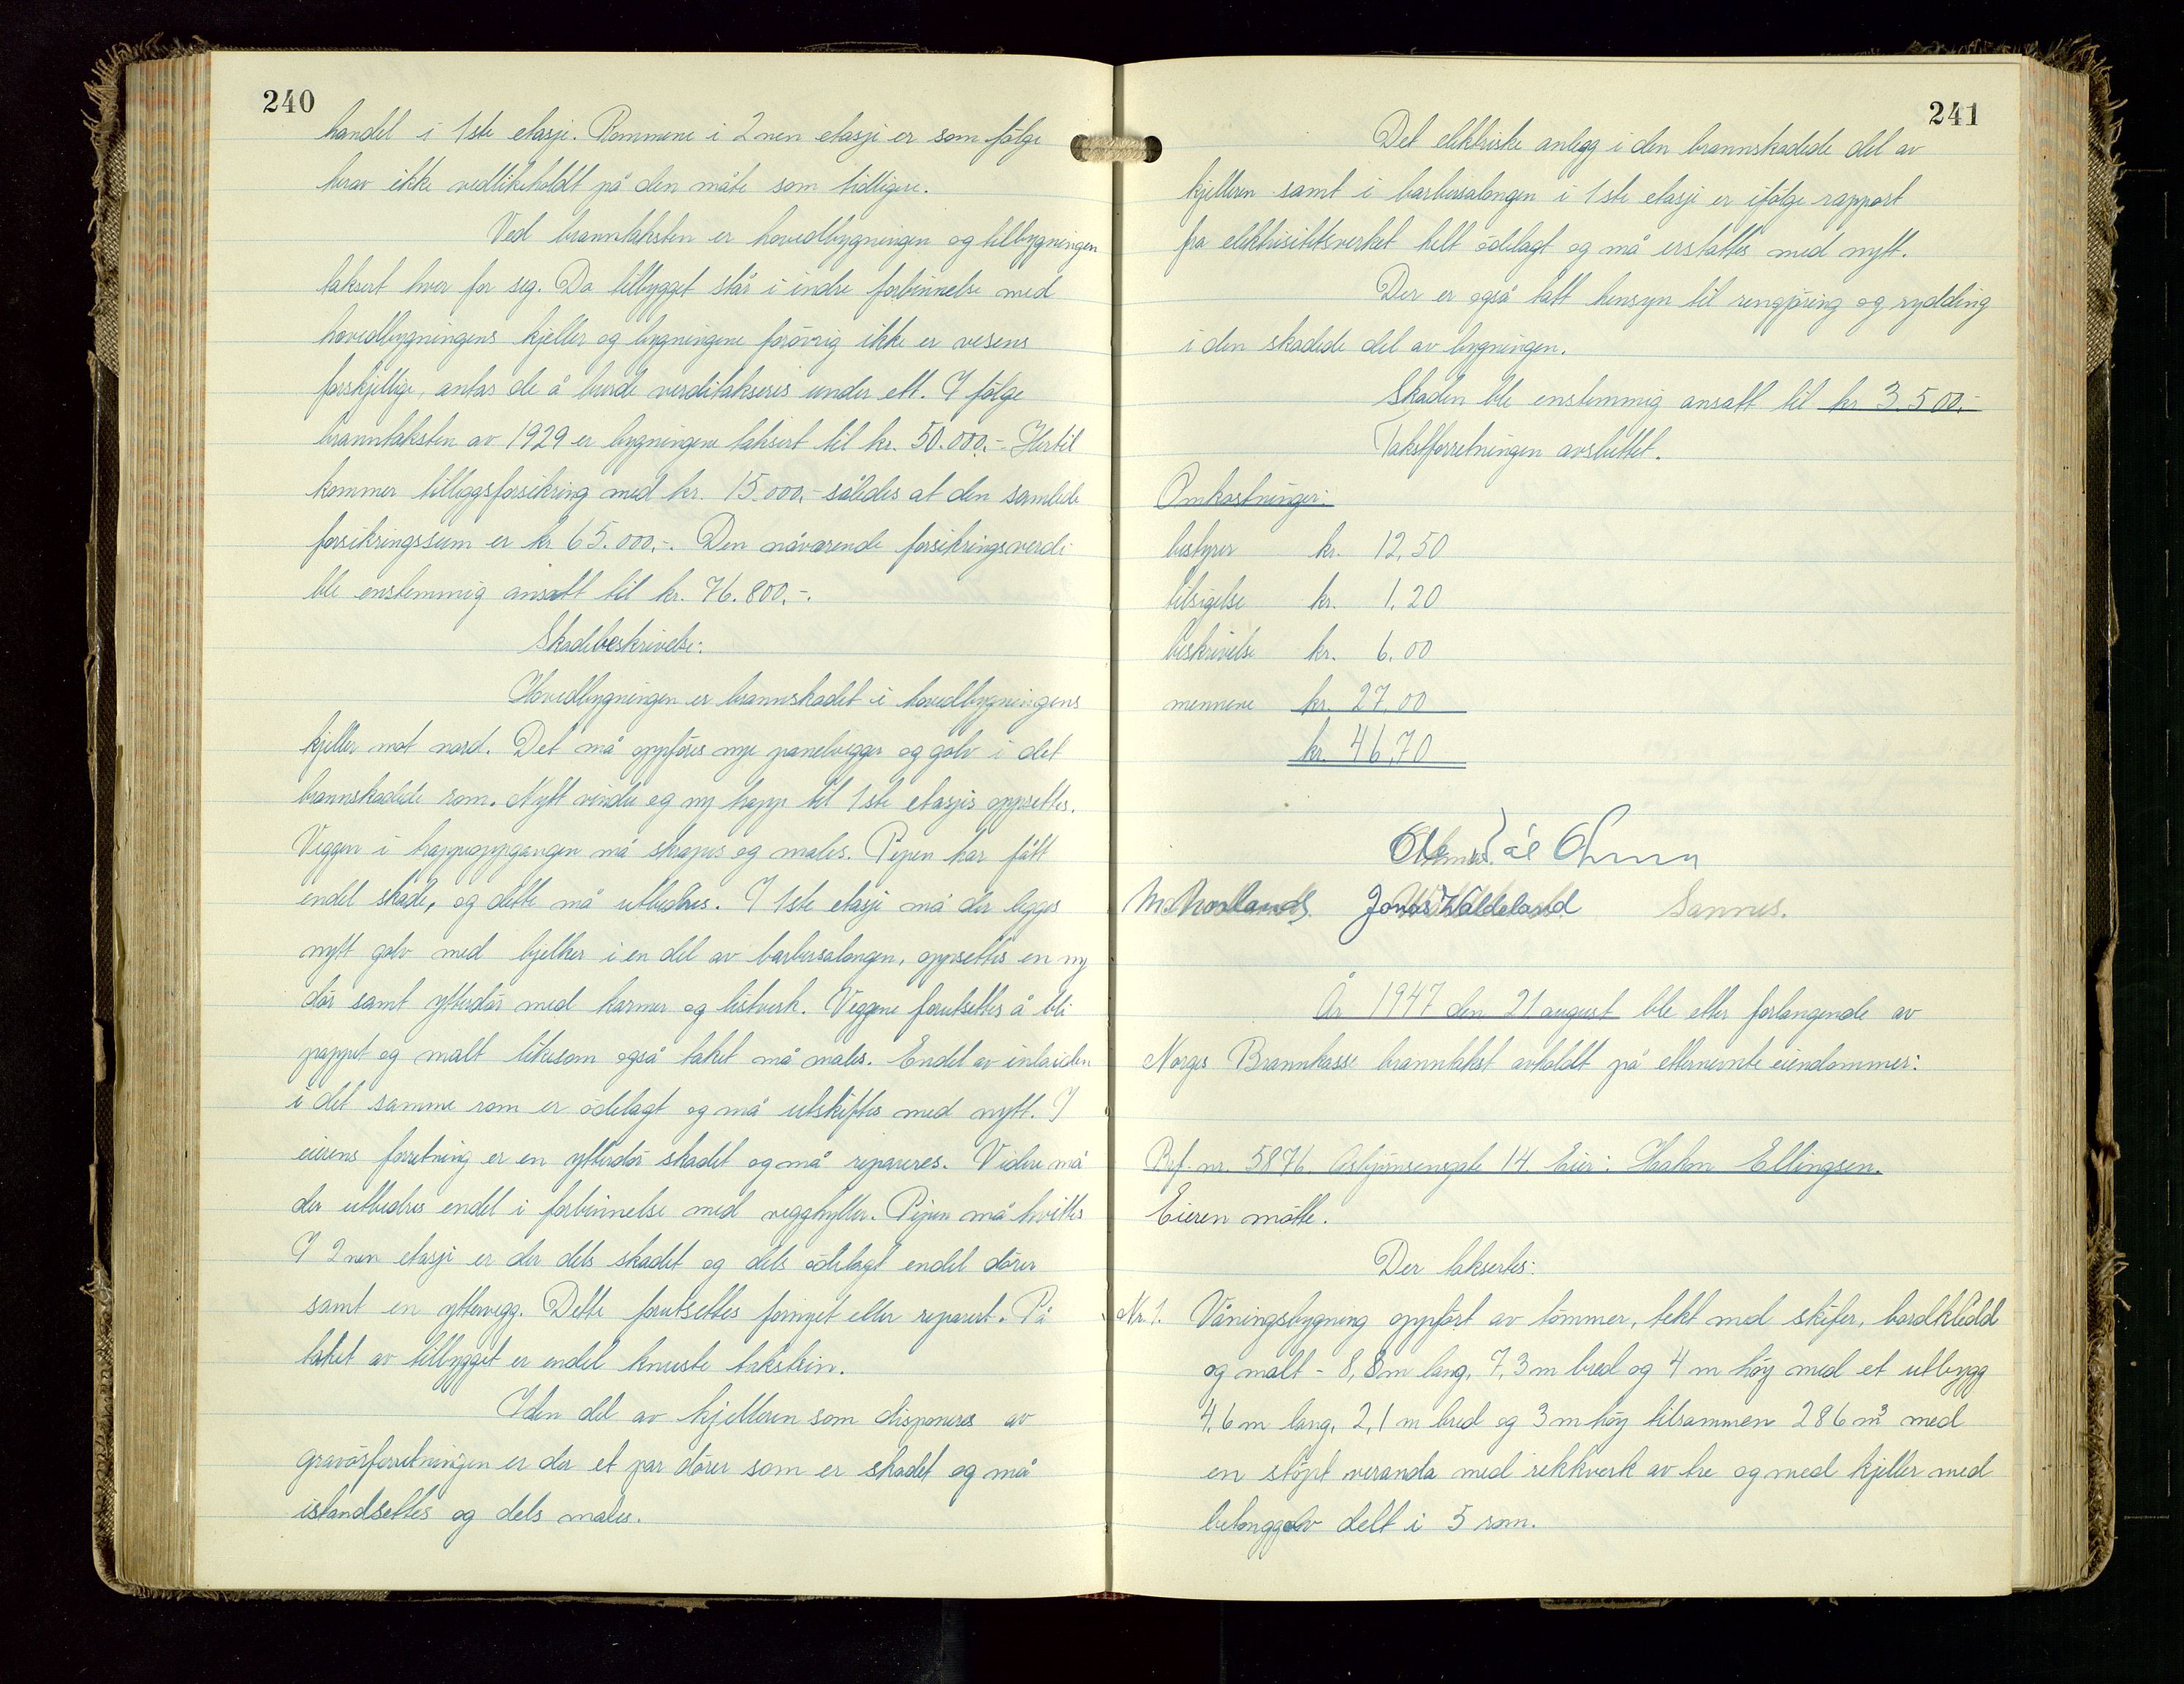 240
handel i 1ste etasje. Rommene i 2nen etasje er som følge
herav ikke vedlikeholdt på den måte som tidligere.
Ved branntaksten er hovedbygningen og tilbygningen
taksert hver for seg. Da tilbygget står i indre forbinnelse med
hovedbygningens kjeller og bygningene forøvrig ikke er vesens
forskjellige, antas de å burde verditakseres under ett. I følge
branntaksten av 1929 er bygningene taksert til kr. 50.000.- Hertil
kommer tilleggsforsikring med kr. 15.000,- således at den samlede
forsikringssum er kr 65.000,-. Den nåværende forsikringsverdi
ble enstemmig ansatt til kr. 76.800,-.
Skadebeskrivelse:
Hovedbygningen er brannskadet i hovedbygningens
kjeller mot nord. Det må oppføres nye panelvegger og golv i det
brannskadede rom. Nytt vindu og ny trapp til 1ste etasjes oppsettes.
Veggen i trappeoppgangen må skrapes og males. Pipen har fått
endel skade, og dette må utbedres. I 1ste etasje må der legges
nytt golv med bjelker i en del av barbersalongen, oppsettes en ny
dør samt ytterdør med karmer og listverk. Veggene forutsettes å bli
pappet og malt likesom også taket må males. Endel av inlaiden
i det samme rom er ødelagt og må utskiftes med nytt. I
eierens forretning er en ytterdør skadet og må repareres. Videre må
der utbedres endel i forbinnelse med vegghyller. Pipen må hvittes
I 2nen etasje er der dels skadet og dels ødelagt endel dører
samt en yttervegg. Dette forutsettes fornyet eller reparert. På
taket av tilbygget er endel knuste takstein.
I den del av kjelleren som disponeres av
gravørforretningen er der et par dører som er skadet og må
istandsettes og dels males.
241
Det elektriske anlegg i den brannskadede del av
kjelleren samt i barbersalongen i 1ste etasje er ifølge rapport
fra elektrisitetsverket helt ødelagt og må erstattes med nytt.
Der er også tatt hensyn til rengjøring og rydding
i den skadede del av bygningen.
Skaden ble enstemmig ansatt til kr 3.500,-
Takstforretningen avsluttet.
Omkostninger:
bestyrer kr. 12,50
tilsigelse kr. 1,20
beskrivelse kr. 6,00
mennene kr. 27,00
kr. 46,70
Jonas Haldeland Sannes.
År 1947 den 21 august ble etter forlangende av
Norges Brannkasse branntakst avholdt på etternevnte eiendommer:
Bref. nr. 5876 Asbjørnsensgate 14. Eier: Hakon Ellingsen.
Eieren møtte.
Der taksertes:
Nr. 1. Våningsbygning oppført av tømmer, tekt med skifer, bordkledd
og malt - 8,8m lang, 7,3m bred og 4 m høy med et utbygg
4,6 m lang, 2,1 m bred og 3 m høy tilsammen 286 m³ med
en støpt veranda med rekkverk av tre og med kjeller med
betonggolv delt i 5 rom.